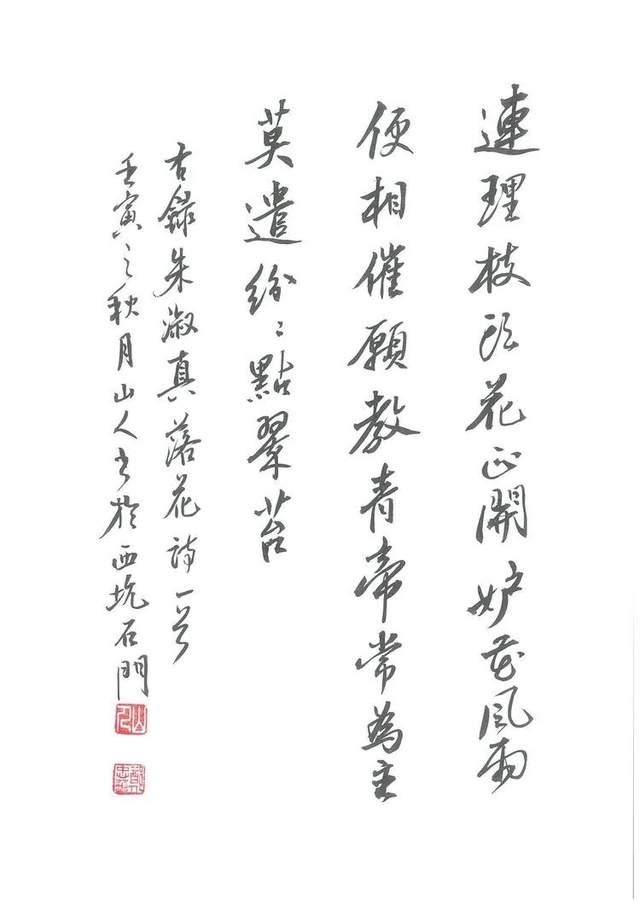 連理枝頭花正開妒花風雨
便相催願教青帝常為主
莫遣紛〻點翠苔
右錄朱淑真落花詩一首
壬寅之秋月山人書於西坑石門
山人